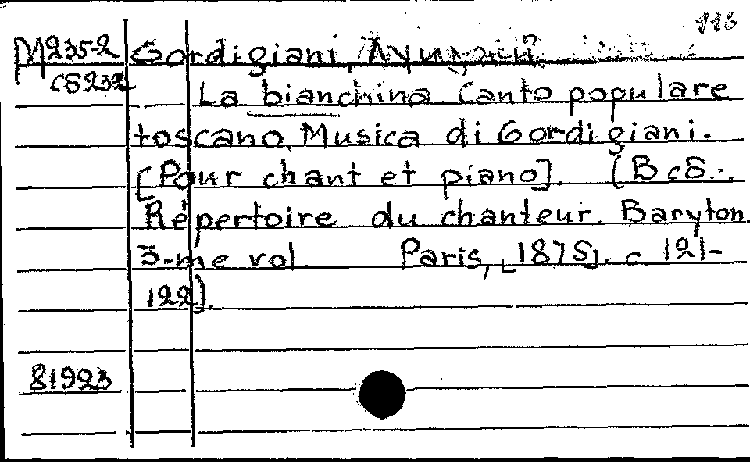 113
М235-2 Gordigiani,
С8232 La bianchina Canto populare
toscano. Musica di Gordigiani.
[Pour chant et piano]. (В сб.:
Répertoire du chanteur. Baryton.
3-me vol Paris, [1875]. с 121-
122).
81923